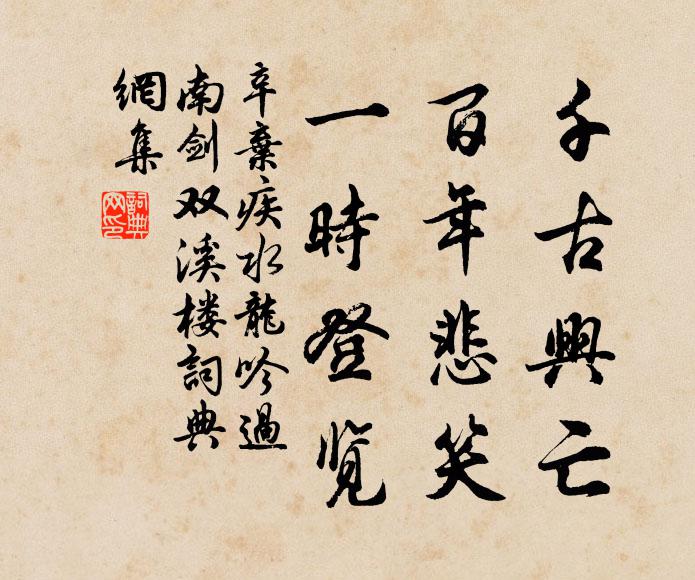 千古興亡
百年悲笑
一時登览
辛棄疾水龍吟過
南剑双溪楼詞典
網集
詞典
网印